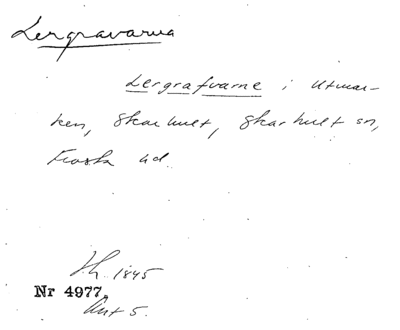 Lergravarna
Lergrafvarne i Utmar-
ken, Skarhult, Skarhult sn,
Frosta hd
Sk. 1845
Nr 4977.
Akt 5.